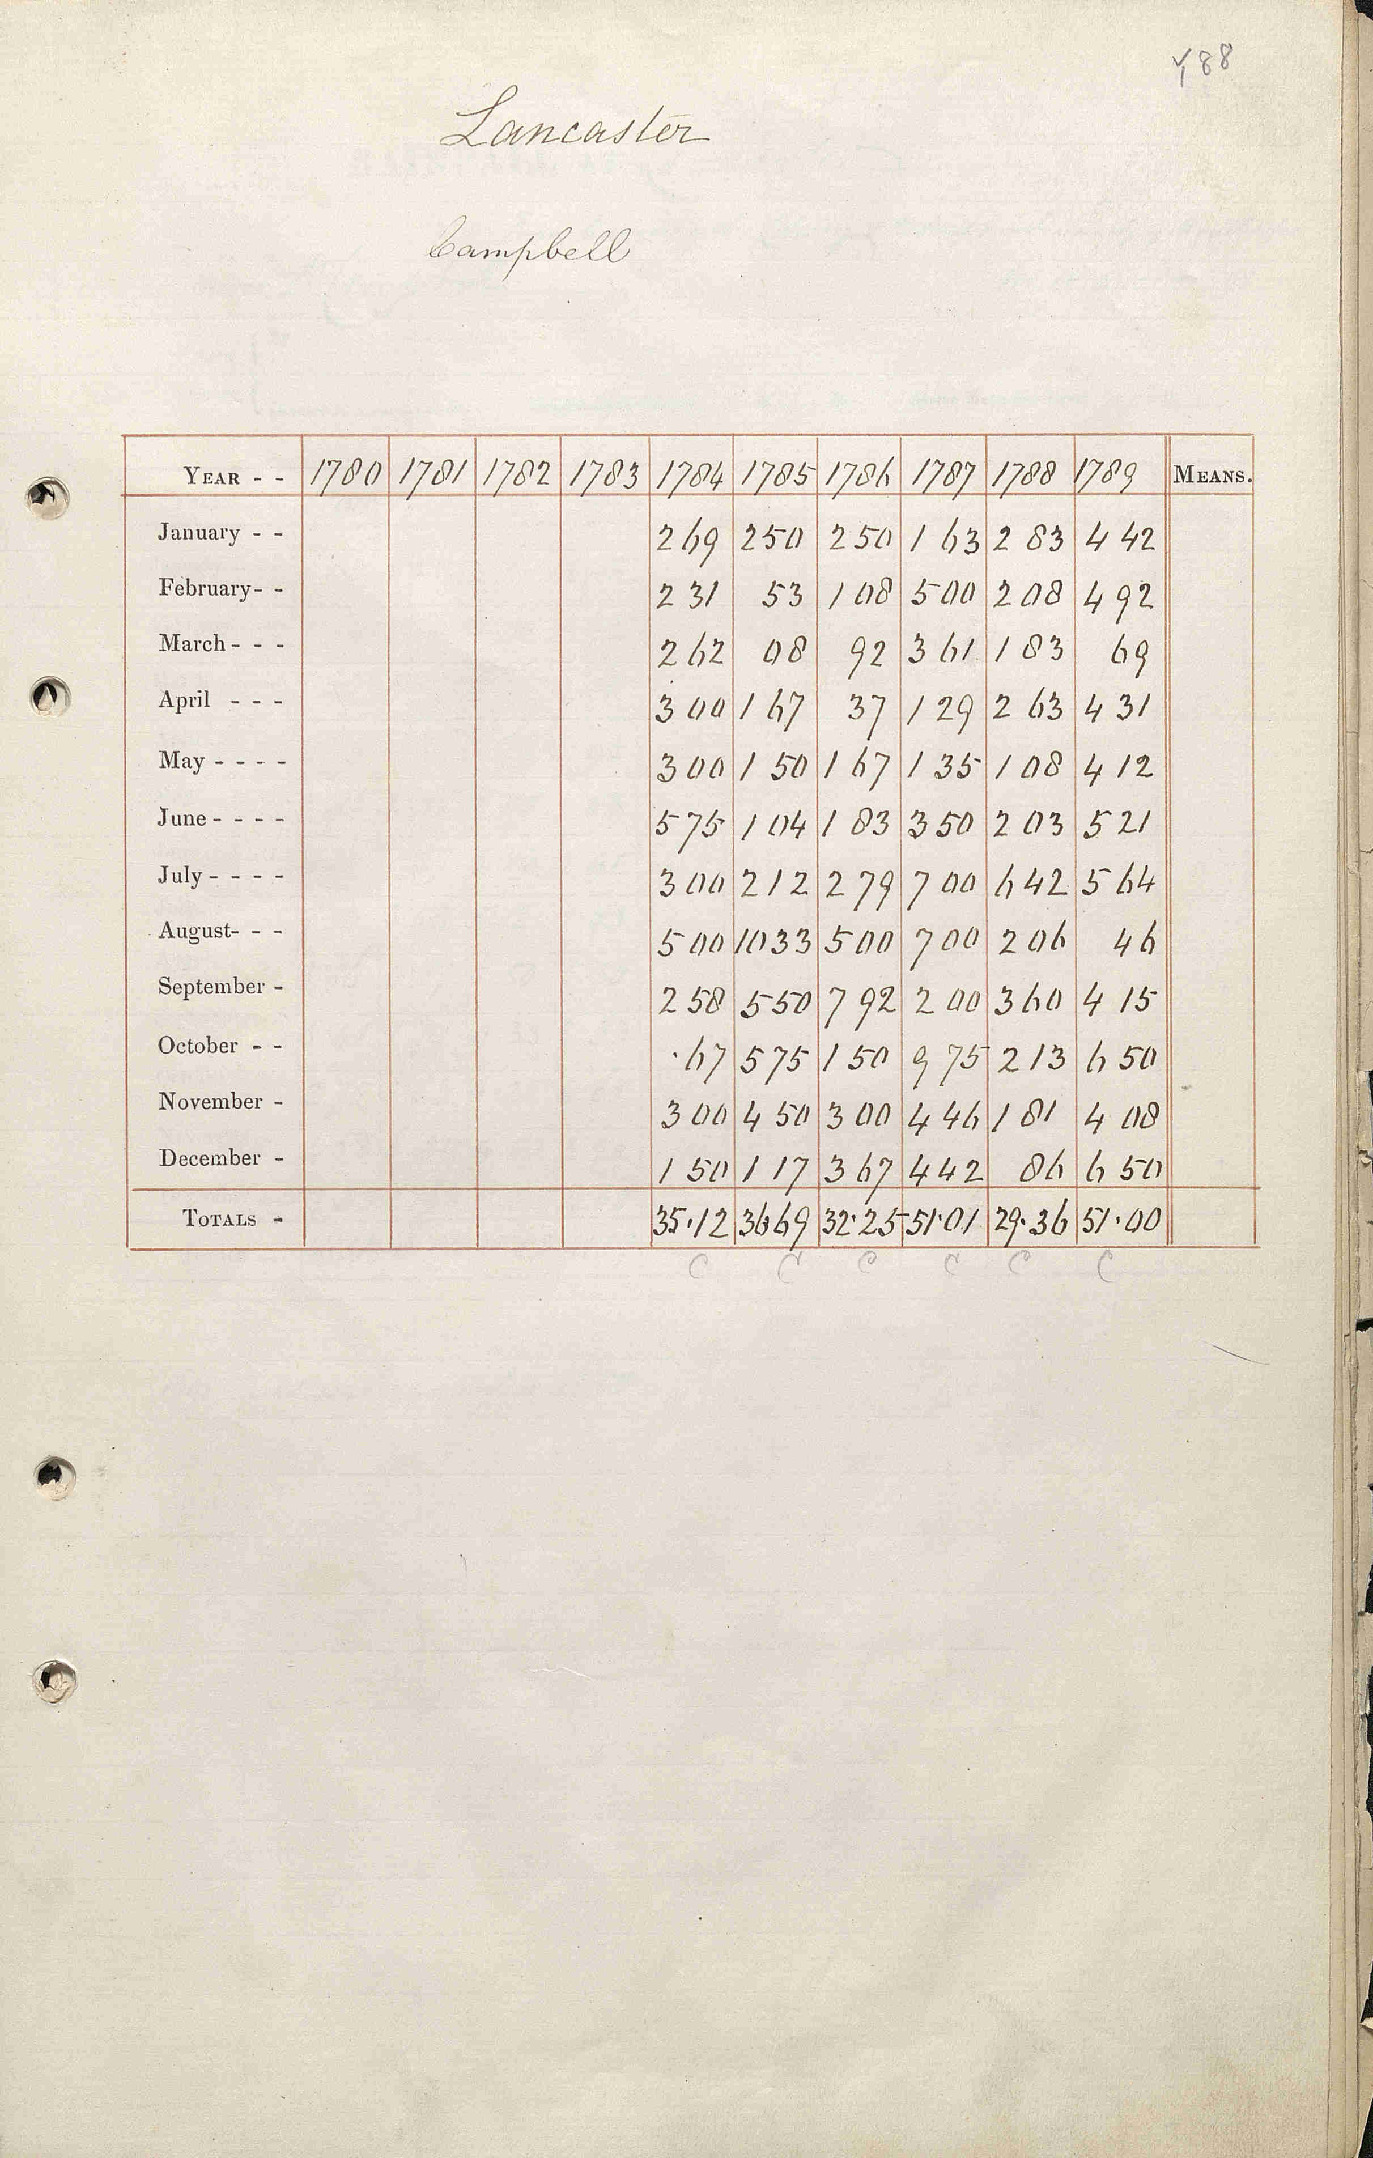 488
Lancaster
Campbell
YEAR - - 1780 1781 1782 1783 1784 1785 1786 1787 1788 1789 MEANS.
January - - 2 69 2 50 2 50 1 63 2 83 4 42
February - - 2 31 53 1 08 5 00 2 08 4 92
March - - - 2 62 08 92 3 61 1 83 69
April - - - 3 00 1 67 37 1 29 2 63 4 31
May - - - - 3 00 1 50 1 67 1 35 1 08 4 12
June - - - - 5 75 1 04 1 83 3 50 2 03 5 21
July - - - - 3 00 2 12 2 79 7 00 6 42 5 64
August- - - 5 00 10 33 5 00 7 00 2 06 46
September - 2 58 5 50 7 92 2 00 3 60 4 15
October - - ·67 5 75 1 50 9 75 2 13 6 50
November - 3 00 4 50 3 00 4 46 1 81 4 08
December - 1 50 1 17 3 67 4 42 86 6 50
TOTALS - 35·12 36·69 32·25 51·01 29·36 51·00
C C C C C C